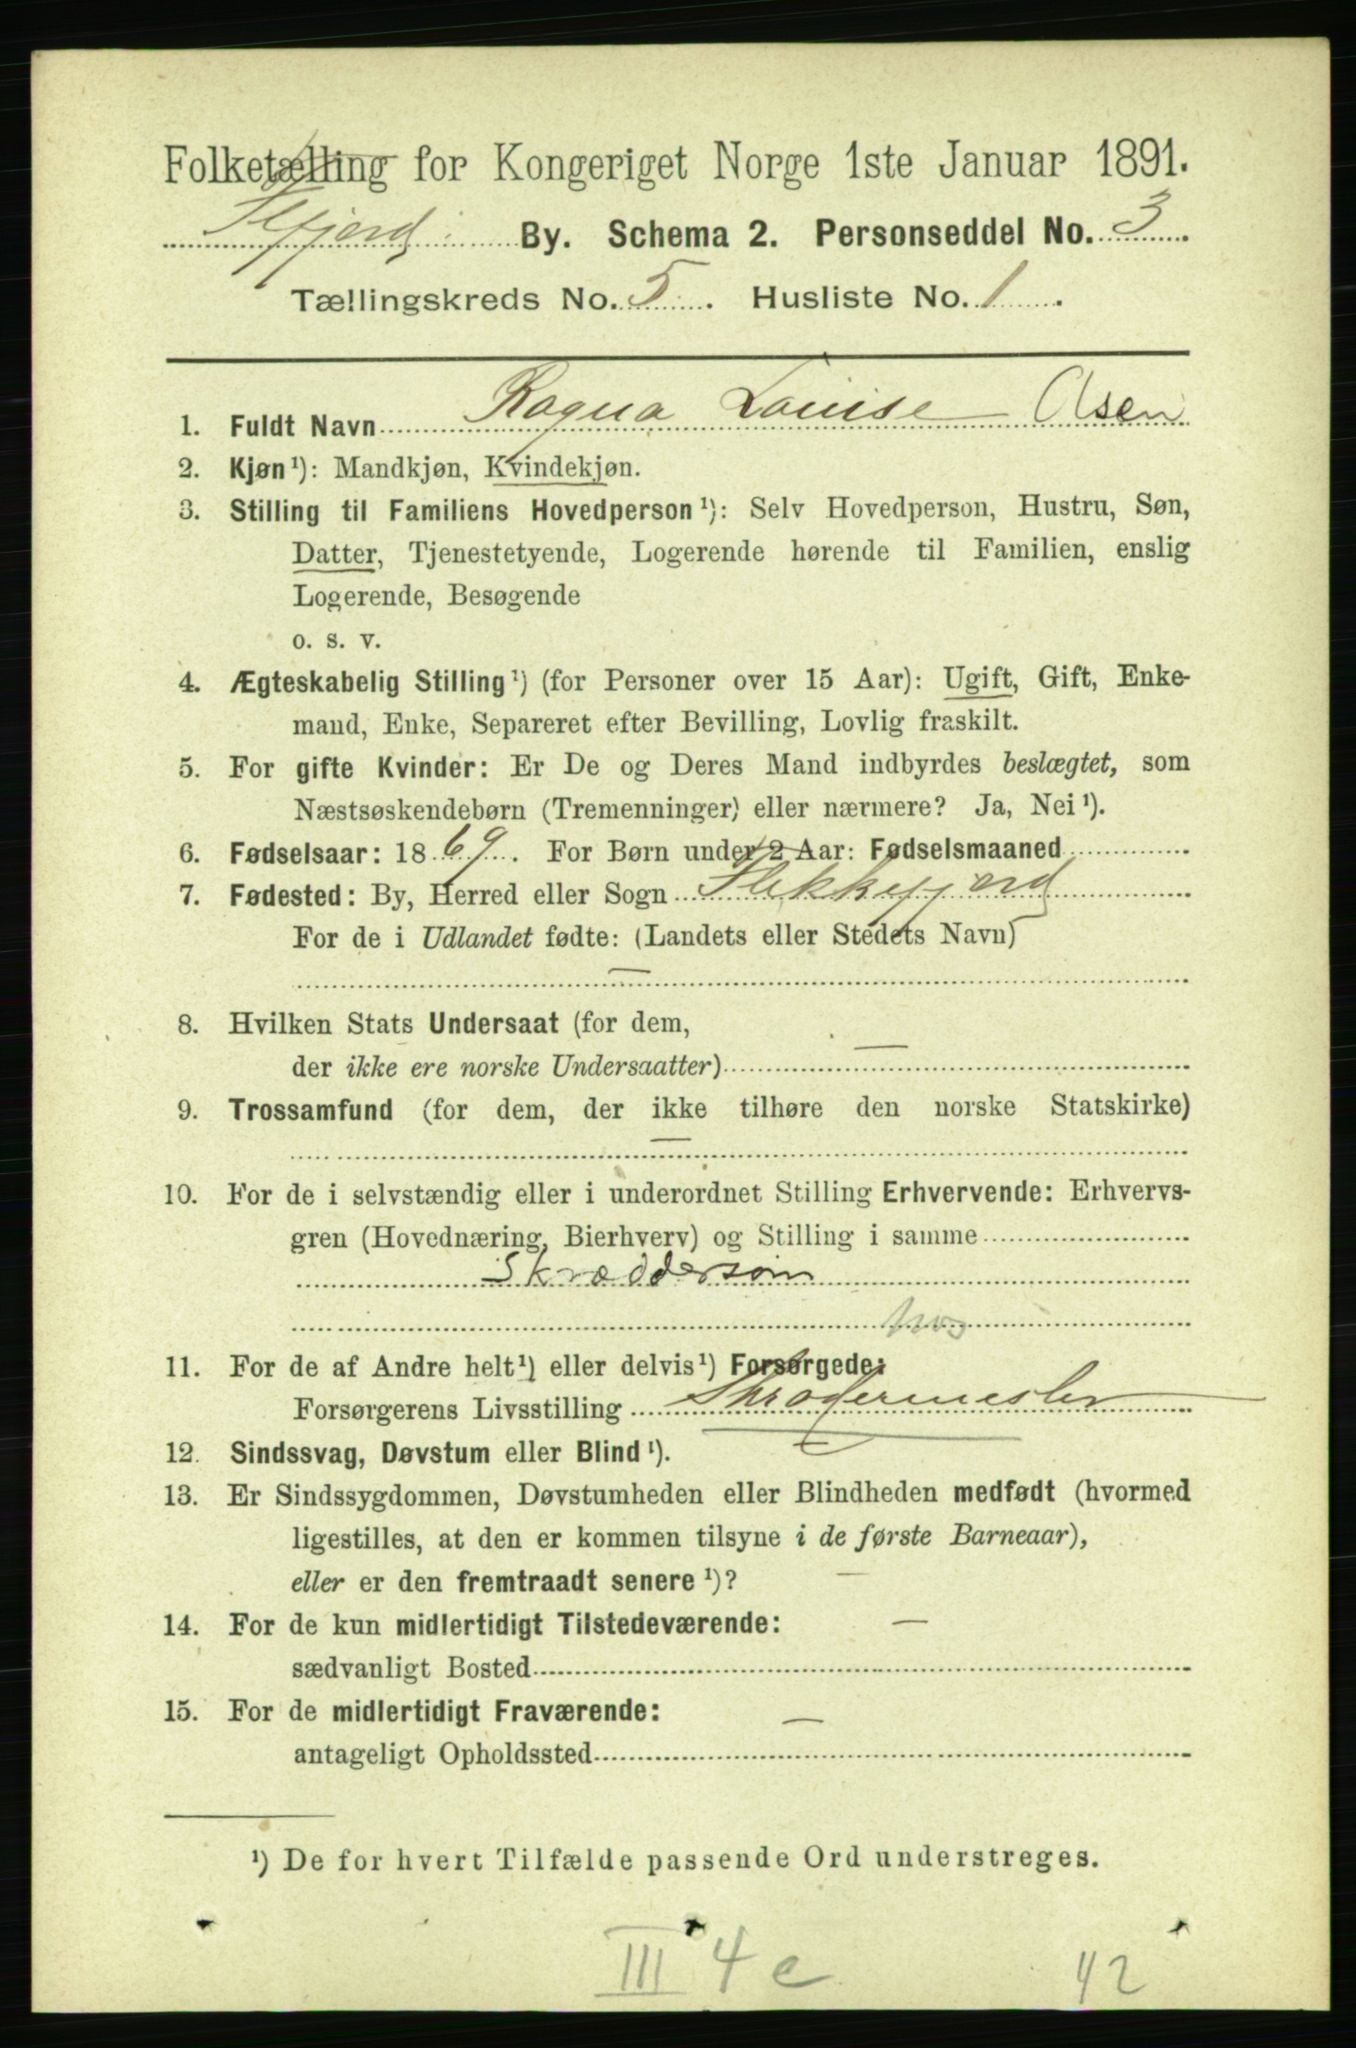 Folketælling for Kongeriget Norge 1ste Januar 1891.
Flfjord By. Schema 2. Personseddel No. 3
Tællingskreds No. 5. Husliste No. 1.
1. Fuldt Navn Ragna Louise Asen
2. Kjøn¹): Mandkjøn, Kvindekjøn.
3. Stilling til Familiens Hovedperson¹): Selv Hovedperson, Hustru, Søn,
Datter, Tjenestetyende, Logerende hørende til Familien, enslig
Logerende, Besøgende
o. s. v.
4. Ægteskabelig Stilling¹) (for Personer over 15 Aar): Ugift, Gift, Enke-
mand, Enke, Separeret efter Bevilling, Lovlig fraskilt.
5. For gifte Kvinder: Er De og Deres Mand indbyrdes beslægtet, som
Næstsøskendebørn (Tremenninger) eller nærmere? Ja, Nei¹).
6. Fødselsaar: 1869. For Børn under 2 Aar: Fødselsmaaned
7. Fødested: By, Herred eller Sogn Flekkefjord
For de i Udlandet fødte: (Landets eller Stedets Navn)
—
8. Hvilken Stats Undersaat (for dem,
der ikke ere norske Undersaatter) —
9. Trossamfund (for dem, der ikke tilhøre den norske Statskirke)
—
10. For de i selvstændig eller i underordnet Stilling Erhvervende: Erhvervs-
gren (Hovednæring, Bierhverv) og Stilling i samme
Skræddersøm
hos
11. For de af Andre helt¹) eller delvis¹) Forsørgede:
Forsørgerens Livsstilling Skrædermester
12. Sindssvag, Døvstum eller Blind¹). —
13. Er Sindssygdommen, Døvstumheden eller Blindheden medfødt (hvormed
ligestilles, at den er kommen tilsyne i de første Barneaar),
eller er den fremtraadt senere¹)? —
14. For de kun midlertidigt Tilstedeværende: —
sædvanligt Bosted
15. For de midlertidigt Fraværende: —
antageligt Opholdssted
¹) De for hvert Tilfælde passende Ord understreges.
III 4 c 42